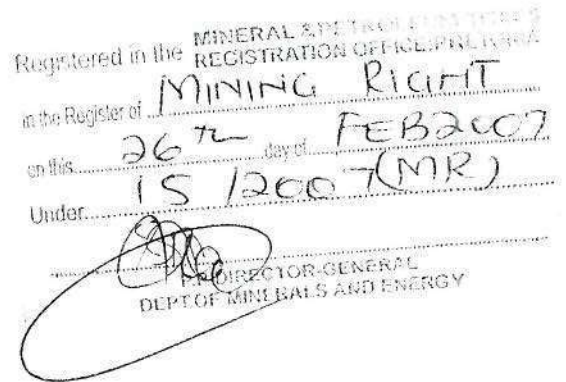 MINERAL & PETROLEUM TITLES
Registered in the REGISTRATION OFFICE PRETORIA
in the Register of MINING RIGHT
on this 26 TH day of FEB 2007
Under 15 / 2007 (MR)
P.P. DIRECTOR-GENERAL
DEPT OF MINERALS AND ENERGY